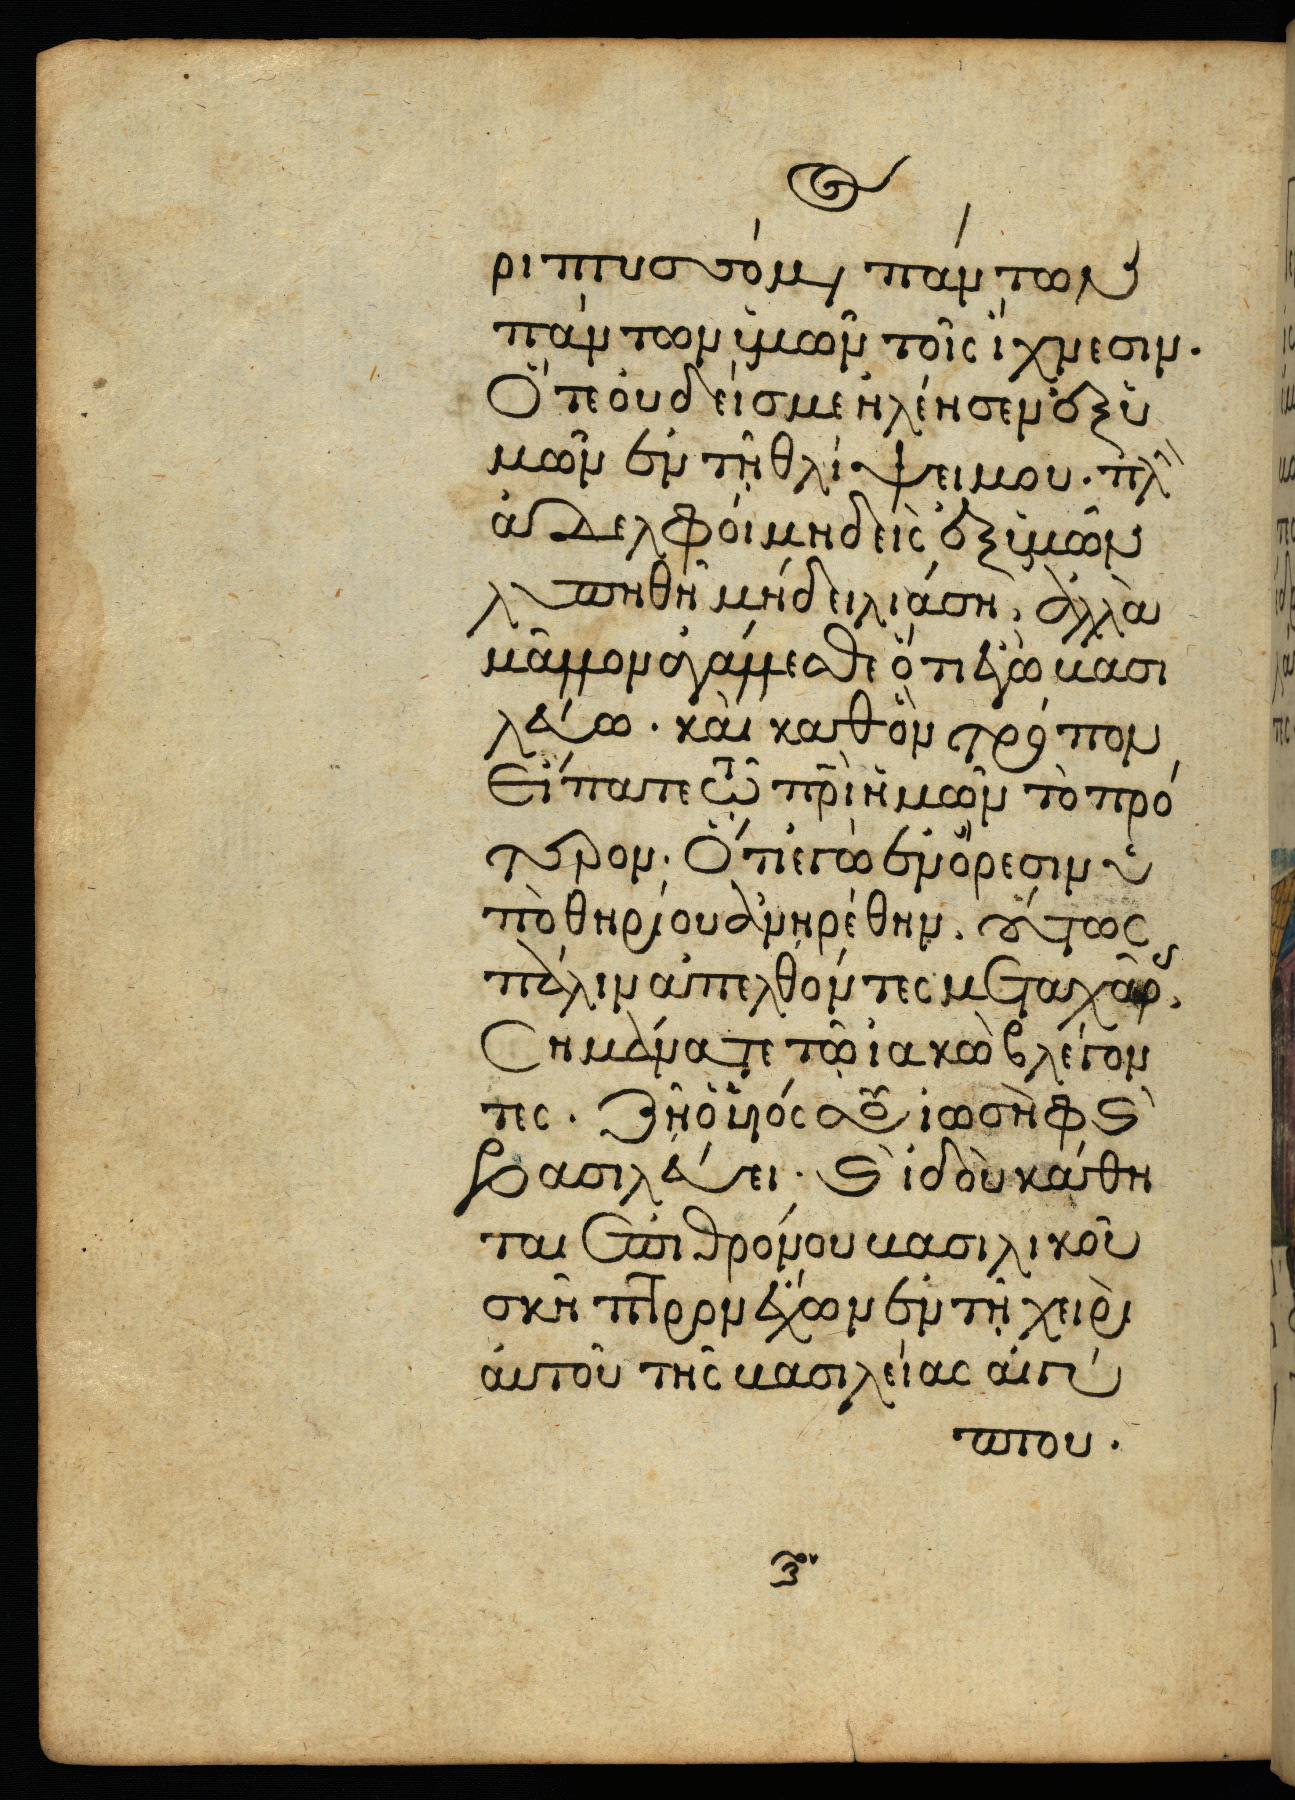 ριπτυσσόμην πάντων
πάντων ὑμῶν τοῖς ἴχνεσιν.
Ὅτε ὀυδείσ με ἠλέησεν ἐξ ὑ
μῶν ἐν τῆ θλίψει μου. πλὴ
ἀδελφόι μηδεὶς ἐξ ὑμῶν
λυπηθῆ μὴ δειλιάση, ἀλλὰ
μᾶλλον ἀγάλλεσθε ὅτι ἐγὼ βασι
λεύω. κὰι καθ ὃν τρόπον
Εἴπατε τῶ πρὶ ἡμῶν τὸ πρό
τερον. Ὅτι ἐγὼ ἐν ὄρεσιν ὑ
πὸ θηρίου ἀνηρέθην. οὕτως
πάλιν ἀπελθόντες μετα χαρᾶς,
Σημάνατε τῶ ἰακὼβ λέγον
τες. Ζῆ ὁ ὑιός σου ἰωσὴφ κὶ
βασιλεύει. κὶ ἰδὸυ κάθη
ται ἐπὶ θρόνου βασιλικοῦ
σκῆπτρον ἔχων ἐν τῆ χειρὶ
ἀυτοῦ τῆς βασιλείας ἀιγύ
πτου.